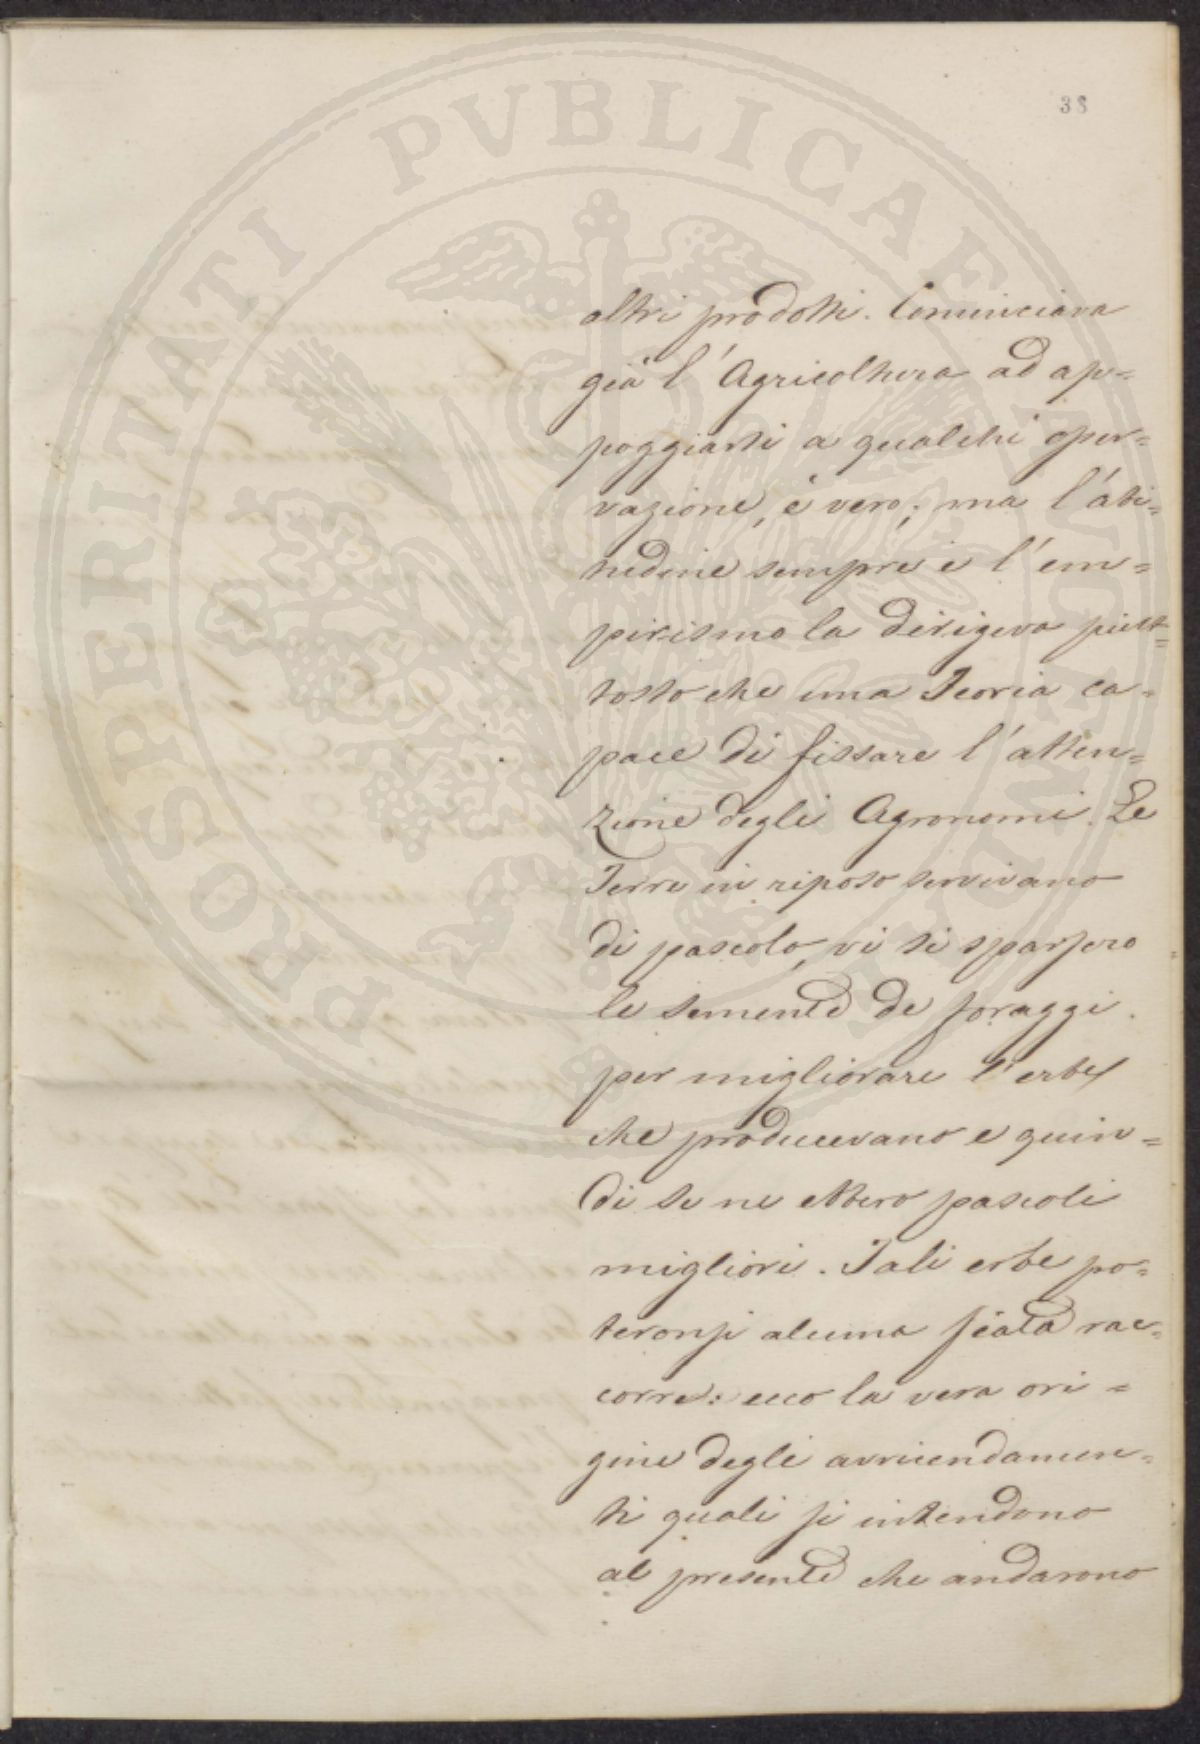 38
PROSPERITATI PVBLICAE AVGENDAE
altri prodotti. Cominciava
già l'Agricoltura ad ap=
poggiarsi a qualche osser=
vazione, è vero; ma l'abi=
tudine sempre e l'em=
pirismo la dirigeva piut=
tosto che una Teoria ca=
pace di fissare l'atten=
zione degli Agronomi. Le
Terre in riposo servivano
di pascolo, vi si sparsero
le semente de foraggi
per migliorare l'erbe
che producevano e quin=
di se ne ebbero pascoli
migliori. Tali erbe po=
teronsi alcuna fiata rac=
corre: ecco la vera ori=
gine degli avvicendamen=
ti quali si intendono
al presente che andarono